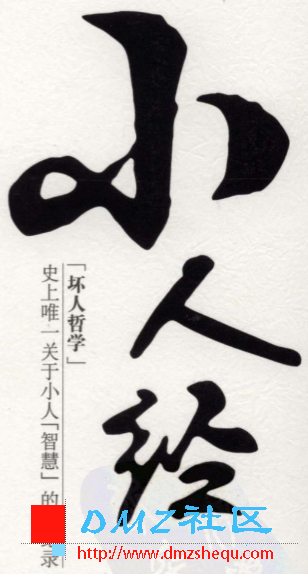 小人经
「坏人哲学」
史上唯一关于小人「智慧」的 录
DMZ社区
http://www.dmzshequ.com